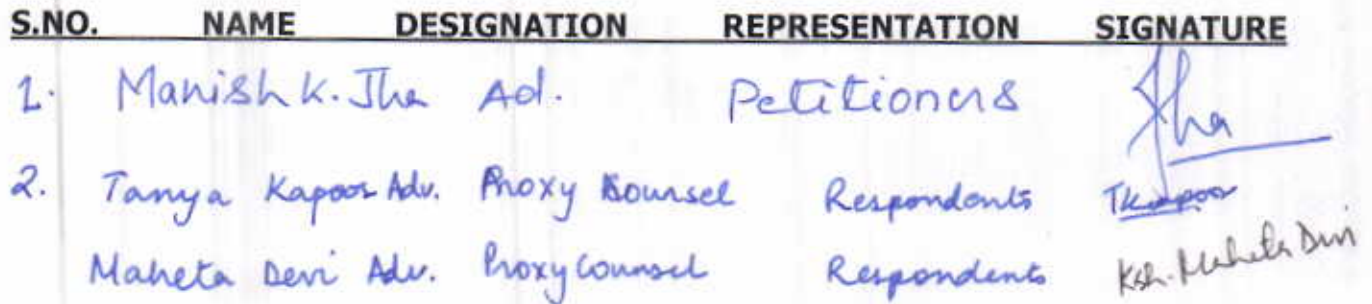 S.NO. NAME DESIGNATION REPRESENTATION SIGNATURE
1. Manish K. Jha Ad. Petitioners Jha
2. Tanya Kapoor Adv. Proxy Counsel Respondents TKapoor
Maheta Devi Adv. Proxy Counsel Respondents Ksh. Maheta Devi